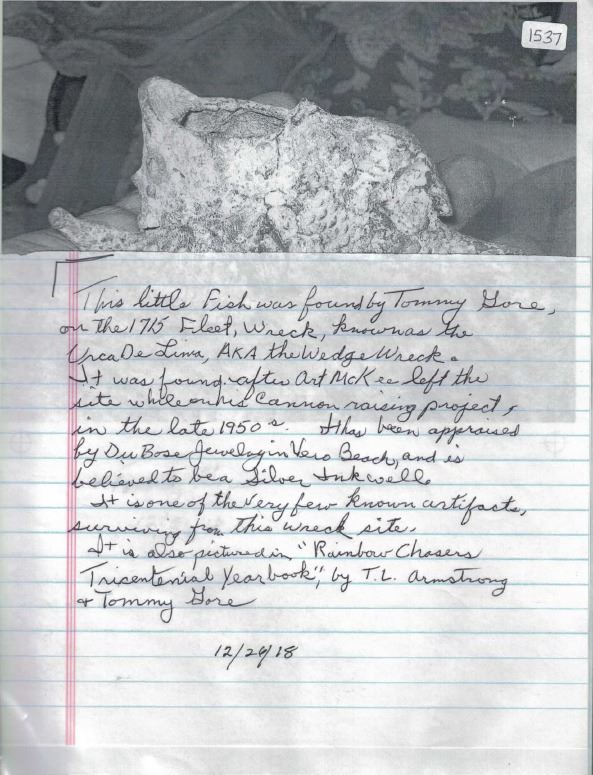 1537
This little Fish was found by Tommy Gore,
on the 1715 Fleet, Wreck, known as the
Urca De Lima, AKA the Wedge Wreck.
It was found after Art McKee left the
site while on his Cannon raising project,
in the late 1950s. It has been appraised
by DuBose Jewelry in Vero Beach, and is
believed to be a Silver Inkwell.
It is one of the very few known artifacts,
surviving from this wreck site.
It is also pictured in "Rainbow Chasers
Tricentenial Yearbook", by T.L. Armstrong
& Tommy Gore